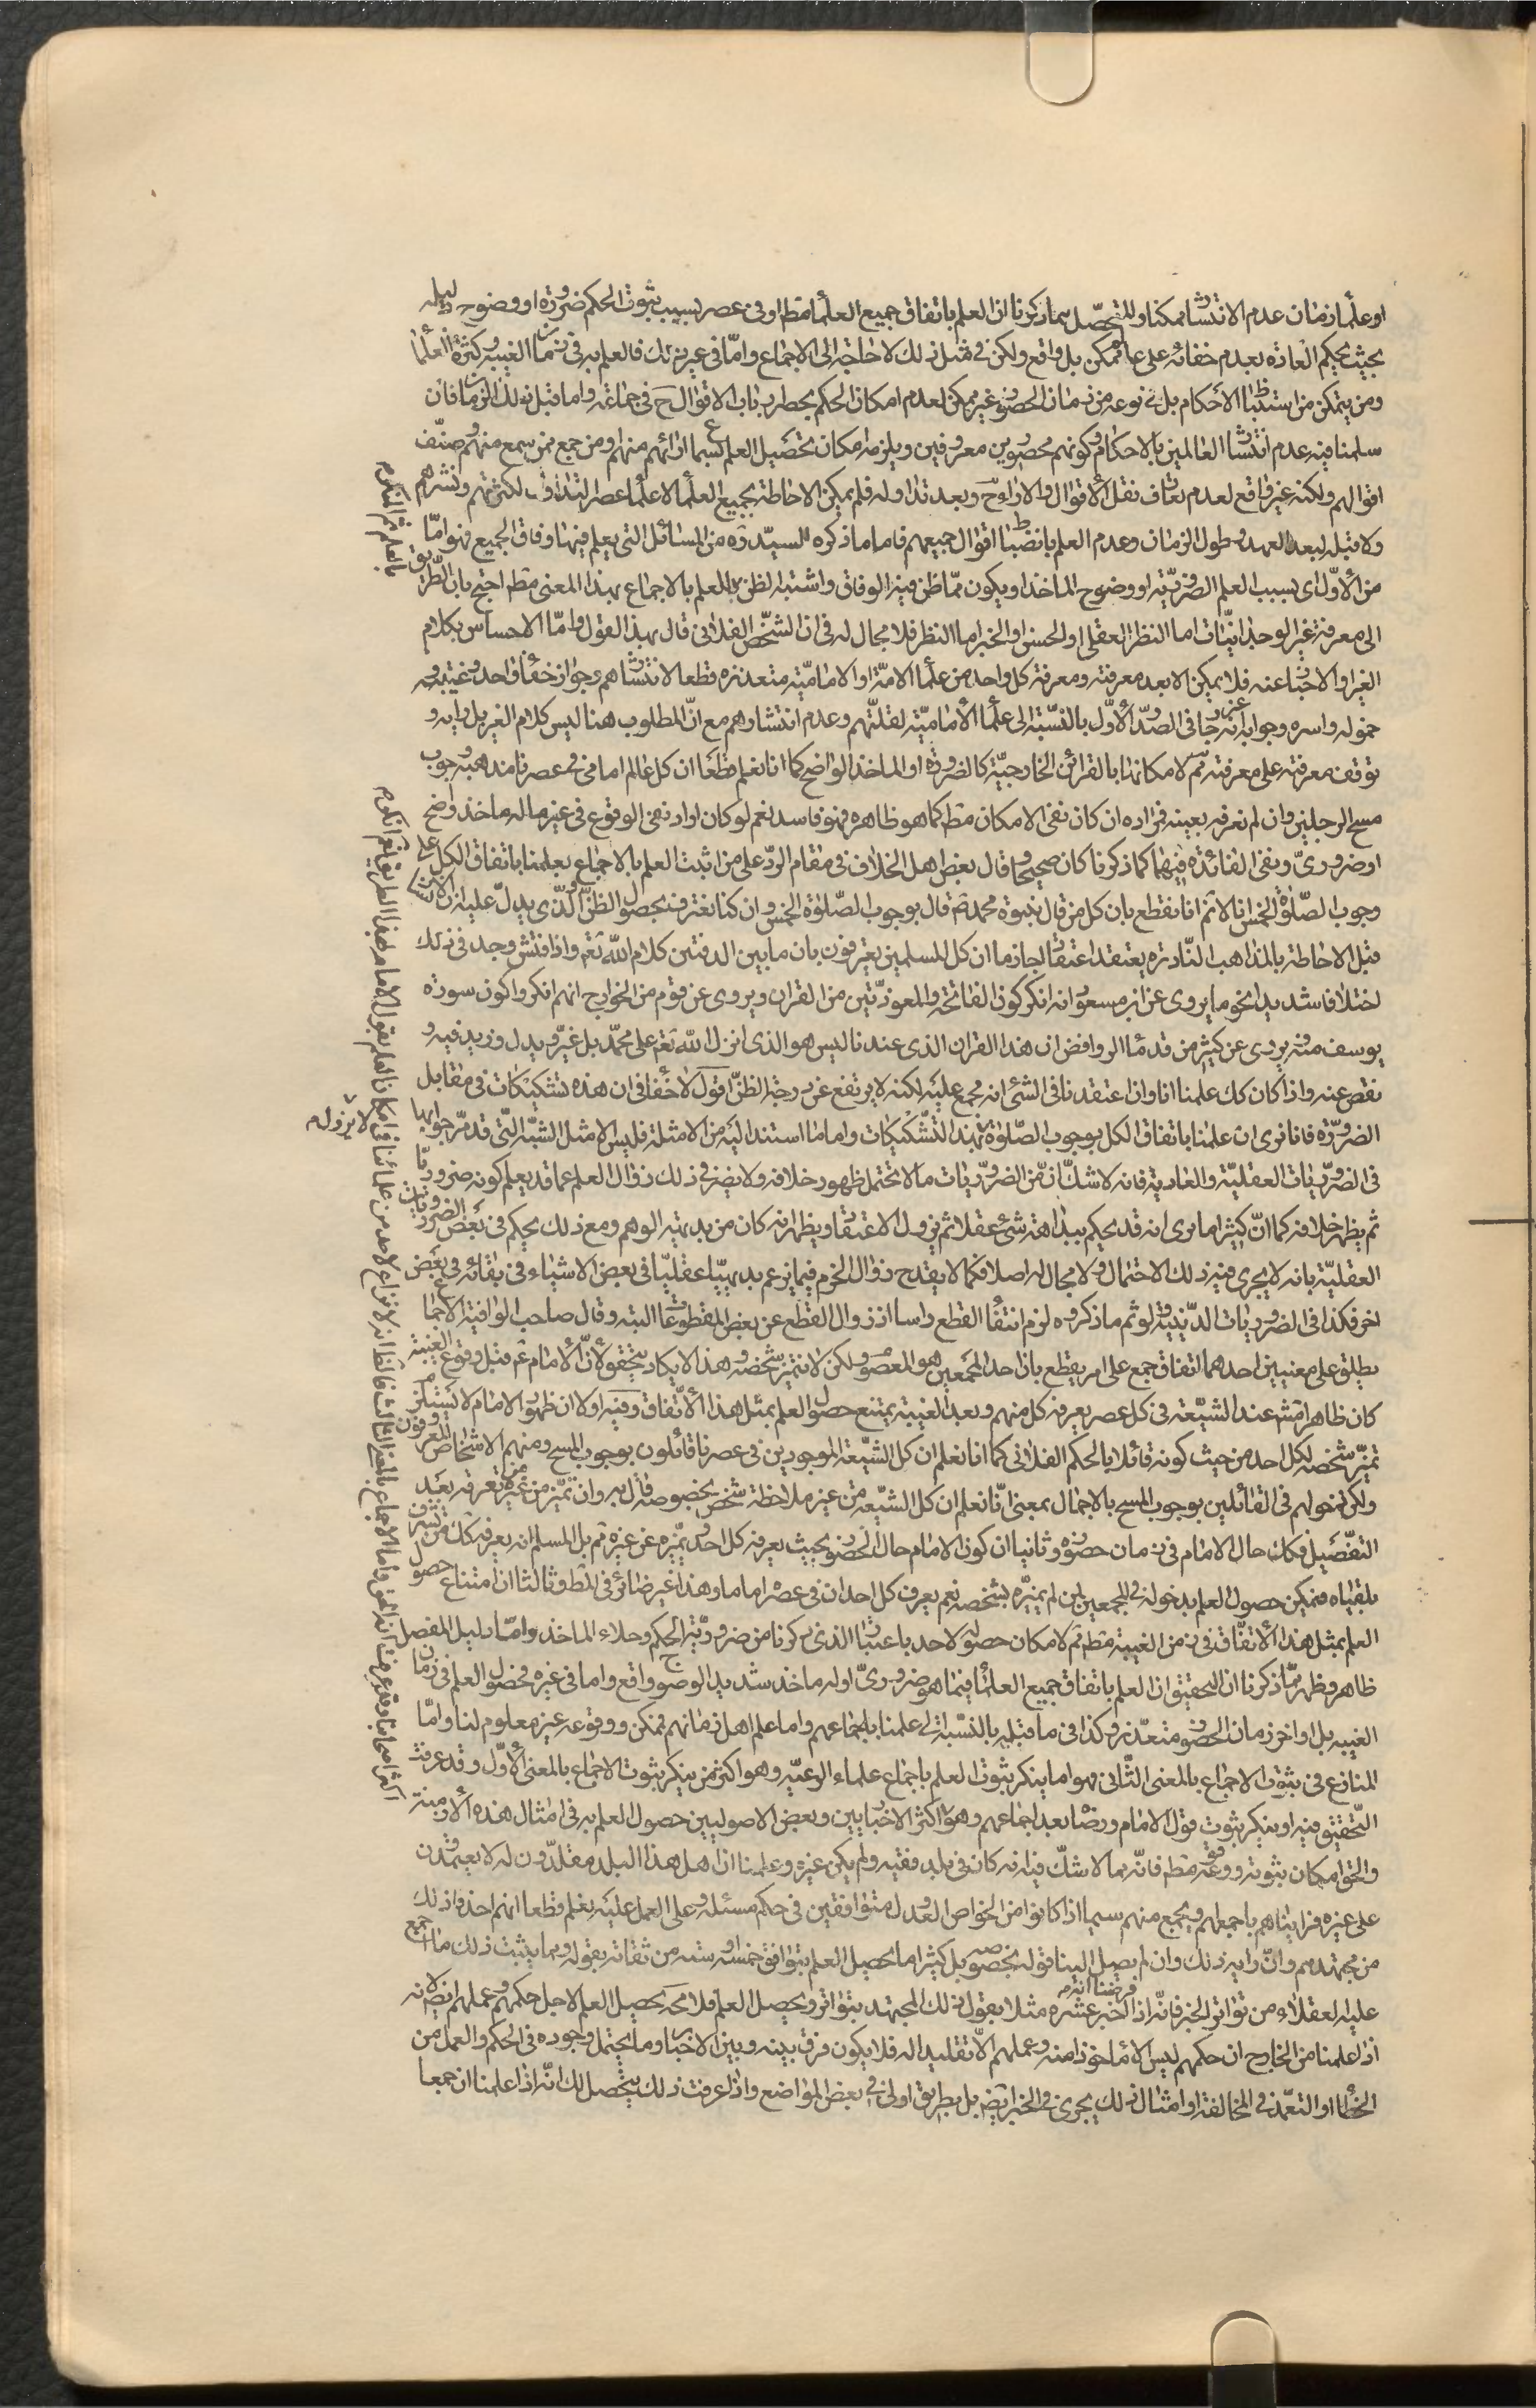 او علماء زمان عدم الانتشار ممكنا وللتحصّل بما ذكرنا ان العلم باتفاق جميع العلماء مط او فى عصر بسبب ثبوت الحكم ضرورة او وضوح دليله
بحيث يحكم العادة بعدم خفائه على عالم ممكن بل واقع ولكن فى مثل ذلك لا حاجة الى الاجماع وامّا فى غير ذلك فالعلم به فى زمان الغيبة وكثرة العلماء
ومن يتمكن من استنباط الاحكام بل نوعه من زمان الحضور غير ممكن لعدم امكان الحكم بحصر ارباب الاقوال ح فى جماعة واما قبل ذلك الزمان فان
سلمنا فيه عدم انتشار العالمين بالاحكام وكونهم محصورين معروفين ويلزمه امكان تحصيل العلم بسماع ارائهم منهم او من جمع ممن سمع منهم وصنّف
اقوالهم ولكنه غير واقع لعدم تعارف نقل الاقوال والاراء ح وبعد تداوله فلم يمكن الاحاطة بجميع العلماء لا علماء عصر التداول لكثرتهم ونشرهم
ولا قبله لبعد العهد وطول الزمان وعدم العلم بانضباط اقوال جميعهم فاما ما ذكره السيّد ره من المسائل التى يعلم فيها وفاق الجميع فهو امّا
من الاوّل اى بسبب العلم الضرورية او وضوح الماخذ او يكون ممّا ظن فيه الوفاق واشتبه الظن بالعلم بالاجماع بهذا المعنى مط احتج بان الطريق
الى معرفة غير الوجدانيّات اما النظر العقلى او الحس او الخبر اما النظر فلا مجال له فى ان الشخص الفلانى قال بهذا القول وامّا الاحساس بكلام
الغير او الاخبار عنه فلا يمكن الا بعد معرفته ومعرفة كل واحد من علماء الامّة او الاماميّة متعذرة قطعا لانتشارهم وجواز خفاء واحد وغيبته و
خموله واسره وجوابه انه غير جار فى الصدر الاوّل بالنسبة الى علماء الاماميّة لقلّتهم وعدم انتشارهم مع انّ المطلوب هنا ليس كلام الغير بل رايه و
توقف معرفته على معرفته مم لامكانها بالقرائن الخارجيّة كالضرورة او الماخذ الواضح كما انا نعلم قطعا ان كل عالم امامى فى عصرنا مذهبه وجوب
مسح الرجلين وان لم نعرفه بعينه فمراده ان كان نفى الامكان مط كما هو ظاهره فهو فاسد نعم لو كان اراد نفى الوقوع فى غير ما له ماخذ واضح
او ضرورىّ ونفى الفائدة فيهما كما ذكرنا كان صحيحا وقال بعض اهل الخلاف فى مقام الردّ على من اثبت العلم بالاجماع بعلمنا باتفاق الكل على
وجوب الصّلوة الخمس انا لا ثم انا نقطع بان كل من قال بنبوة محمد ص قال بوجوب الصّلوة الخمس وان كنا نعترف بحصول الظنّ والّذى يدلّ عليه ان الانسان
قبل الاحاطة بالمذاهب النّادرة يعتقد اعتقادا جازما ان كل المسلمين يعترفون بان ما بين الدفتين كلام الله تع واذا فتش وجد فى ذلك
اختلافا شديدا نحو ما يروى عن ابن مسعود انه انكر كون الفاتحة والمعوذتين من القران ويروى عن قوم من الخوارج انهم انكروا كون سورة
يوسف منه ويروى عن كثير من قدماء الروافض ان هذا القران الذى عندنا ليس هو الذى انزل الله تع على محمّد بل غيّر وبدل وزيد فيه و
نقص عنه واذا كان كك علمنا انا وان اعتقدنا فى الشئ انه مجمع عليه لكنه لا يرتفع عن درجة الظنّ اقول لا خفاء فى ان هذه تشكيكات فى مقابل
الضرورة فانا نرى ان علمنا باتفاق الكل بوجوب الصّلوة بهذه التّشكيكات واما ما استند اليه من الامثلة فليس الا مثل الشبه التى قد مرّ جوابها
فى الضروريّات العقليّة والعادية فانه لا شكّ ان من الضروريّات ما لا يحتمل ظهور خلافه ولا يضر فى ذلك زوال العلم عما قد يعلم كونه ضروريّا
ثم يظهر خلافه كما انّ كثيرا ما نرى انه قد يحكم ببداهة شئ عقلا ثم يزول الاعتقاد ويظهر انه كان من بديهيّة الوهم ومع ذلك يحكم فى بعض الضروريات
العقليّة بانه لا يجرى فيه ذلك الاحتمال ولا مجال له اصلا فكما لا يقدح زوال الجزم فيما يزعم بديهيّا عقليّا فى بعض الاشياء فى بقائه فى بعض
اخر فكذا فى الضروريات الدّينيّة ولو ثم ما ذكروه لزم انتفاء القطع راسا اذ زوال القطع عن بعض المقطوعات البته وقال صاحب الوافية الاجماع
يطلق على معنيين احدهما اتفاق جمع على امر يقطع بان احد المجمعين هو المعصوم ولكن لا يتميّز شخصه وهذا لا يكاد يتحقق لانّ الامام ع قبل وقوع الغيبة
كان ظاهرا مش عند الشيعة فى كل عصر يعرفه كل منهم وبعد الغيبة يمتنع حصول العلم بمثل هذا الاتّفاق وفيه اولا ان ظهور الامام لا يستلزم
تميّز شخصه لكل احد من حيث كونه قائلا بالحكم الفلانى كما انا نعلم ان كل الشيعة الموجودين فى عصرنا قائلون بوجوب المسح ومنهم الاشخاص المعروفون
ولكن دخولهم فى القائلين بوجوب المسح بالاجمال بمعنى انّا نعلم ان كل الشيعة من غير ملاحظة شخص بخصوصه قائل به وان تميّز من غيره نعرفه بعد
التفصيل فكك حال الامام فى زمان حضوره وثانيا ان كون الامام حال الحضور بحيث يعرفه كل احد ويميّزه عن غيره مم بل المسلم انه يعرفه كك من تشرف
بلقياه فيمكن حصول العلم بدخوله فى المجمعين لمن لم يميّزه بشخصه نعم يعرف كل احد ان فى عصره اماما وهذا غير ضائر فى المط وثالثا ان امتناع حصول
العلم بمثل هذا الاتّفاق فى زمن الغيبة مط مم لامكان حصوله لاحد باعتبار الذى ذكرنا من ضروريّة الحكم وجلاء الماخذ وامّا دليل المفصل
ظاهر وظهر ممّا ذكرنا ان التحقيق ان العلم باتفاق جميع العلماء فيما هو ضرورىّ او له ماخذ شديد الوضوح واقع واما فى غيره فحصول العلم فى زمان
الغيبة بل اواخر زمان الحضور متعذر وكذا فى ما قبله بالنّسبة الى علمنا باجماعهم واما علم اهل زمانهم فممكن ووقوعه غير معلوم لنا وامّا
المنازع فى ثبوت الاجماع بالمعنى الثّانى فهو اما ينكر ثبوت العلم باجماع علماء الرعيّة وهو اكثر من ينكر ثبوت الاجماع بالمعنى الاوّل وقد عرفت
التّحقيق فيه او ينكر ثبوت قول الامام ورضاه بعد اجماعهم وهو اكثر الاخباريين وبعض الاصوليين حصول العلم به فى امثال هذه الازمنة
والحق امكان ثبوته ووقوعه مط فانّه مما لا شكّ فيه انه كان فى بلد فقيه ولم يكن غيره وعلمنا ان اهل هذا البلد مقلدون له لا يعتمدون
على غيره فراينا هم باجمعهم او بجمع منهم سيما اذا كانوا من الخواص العدول متوافقين فى حكم مسئلة وعلى العمل عليه نعلم قطعا انهم اخذوا ذلك
من مجتهدهم وانّ رايه ذلك وان لم يصل الينا قوله بخصوصه بل كثيرا ما يحصل العلم بتوافق خمسة او ستة من ثقاته بقوله ومما يثبت ذلك ما اجمع
عليه العقلاء من تواتر الخبر فانّه اذا اخبر عشرة مثلا بقول ذلك المجتهد يتواتر ويحصل العلم فلا محة يحصل العلم لاجل حكمهم وعملهم ايضا لانه
اذا علمنا من الخارج ان حكمهم ليس الا ماخوذا منه وعملهم الا تقليدا له فلا يكون فرق بينه وبين الاخبار وما يحتمل وجوده فى الحكم والعمل من
الخطاء او التعمد فى المخالفة او امثال ذلك يجرى فى الخبر ايضا بل بطريق اولى فى بعض المواضع واذا عرفت ذلك يتحصل لك انّه اذا علمنا ان جمعا
لا يزول م